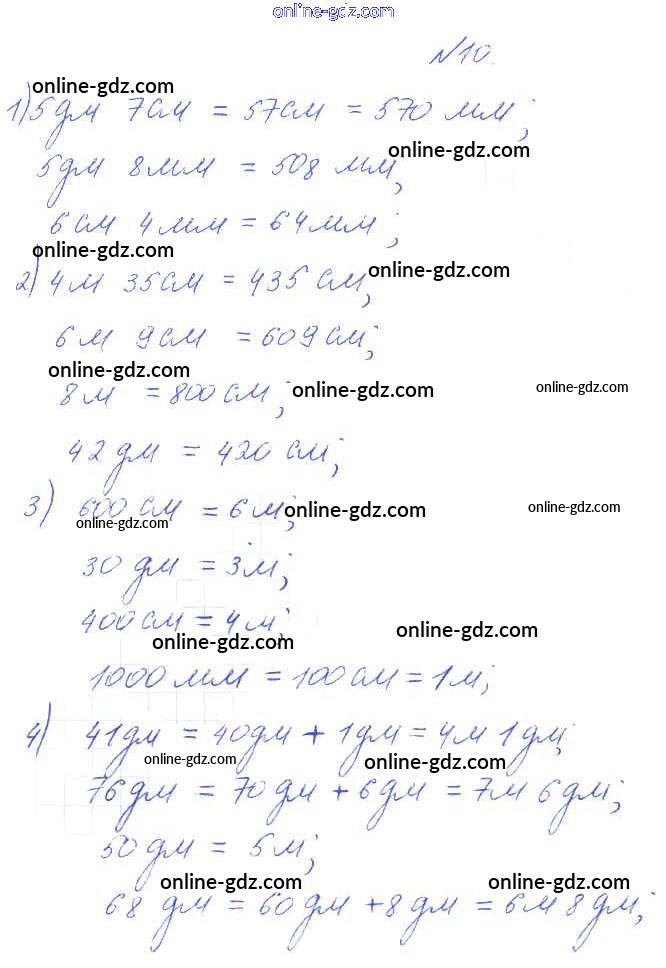 online-gdz.com
№10.
online-gdz.com
1) 5дм 7см = 57см = 570 мм;
online-gdz.com
5дм 8мм = 508 мм,
6см 4мм = 64мм;
online-gdz.com
online-gdz.com
2) 4м 35см = 435 см,
6м 9см = 609см;
online-gdz.com
online-gdz.com
online-gdz.com
8м = 800см;
42 дм = 420 см;
3) 600 см = 6м;
online-gdz.com
online-gdz.com
online-gdz.com
30 дм = 3м;
400см = 4м;
online-gdz.com
online-gdz.com
1000 мм = 100см = 1м;
4) 41дм = 40дм + 1дм = 4м 1дм;
online-gdz.com
online-gdz.com
76дм = 70дм + 6дм = 7м 6дм;
50дм = 5м;
online-gdz.com
online-gdz.com
68 дм = 60дм + 8дм = 6м 8дм;